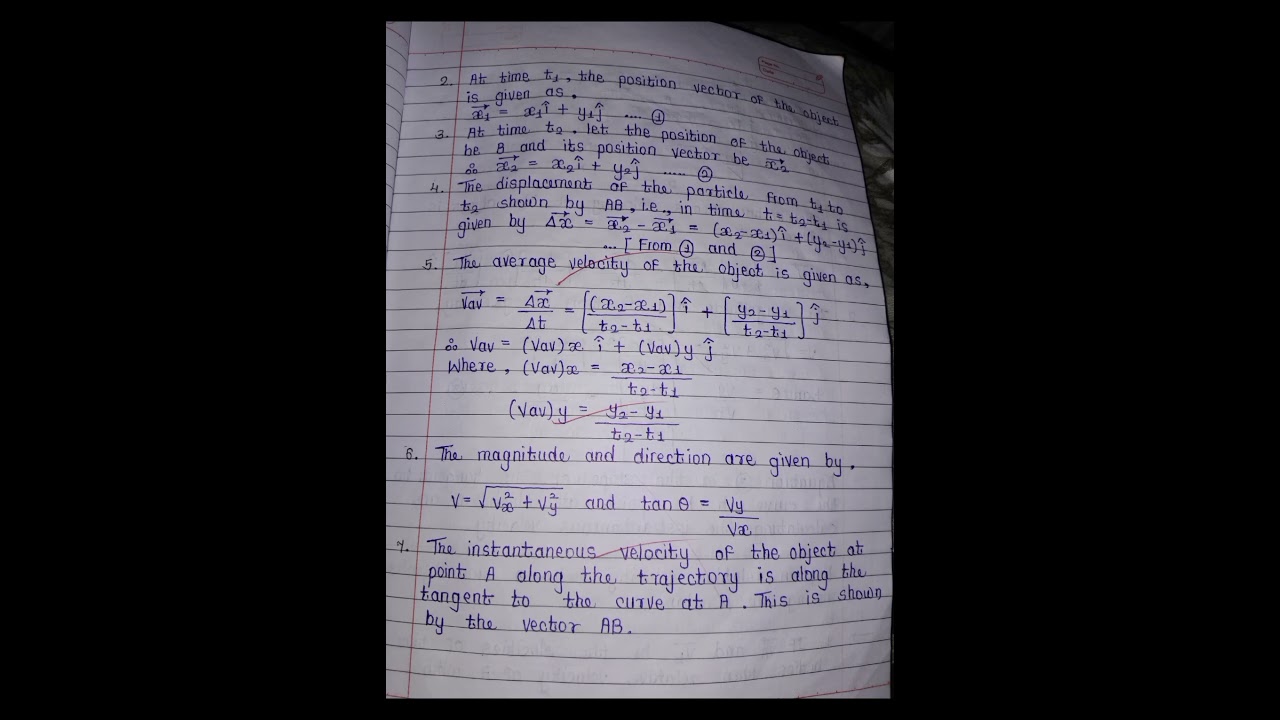 2. At time t₁, the position vector of the object
is given as.
x⃗₁ = x₁î + y₁ĵ .... ①
3. At time t₂. let the position of the object
be B and its position vector be x⃗₂
∴ x⃗₂ = x₂î + y₂ĵ ..... ②
4. The displacement of the particle from t₁ to
t₂ shown by AB, i.e., in time t = t₂-t₁ is
given by Δx⃗ = x⃗₂ - x⃗₁ = (x₂-x₁)î + (y₂-y₁)ĵ
... [From ① and ②]
5. The average velocity of the object is given as,
V⃗av = Δx⃗/Δt = [(x₂-x₁)/t₂-t₁] î + [y₂-y₁/t₂-t₁] ĵ
∴ Vav = (Vav)x î + (Vav)y ĵ
Where, (Vav)x = x₂-x₁/t₂-t₁
(Vav)y = y₂-y₁/t₂-t₁
6. The magnitude and direction are given by.
V = √Vx² + Vy² and tan θ = Vy/Vx
7. The instantaneous velocity of the object at
point A along the trajectory is along the
tangent to the curve at A. This is shown
by the vector AB.